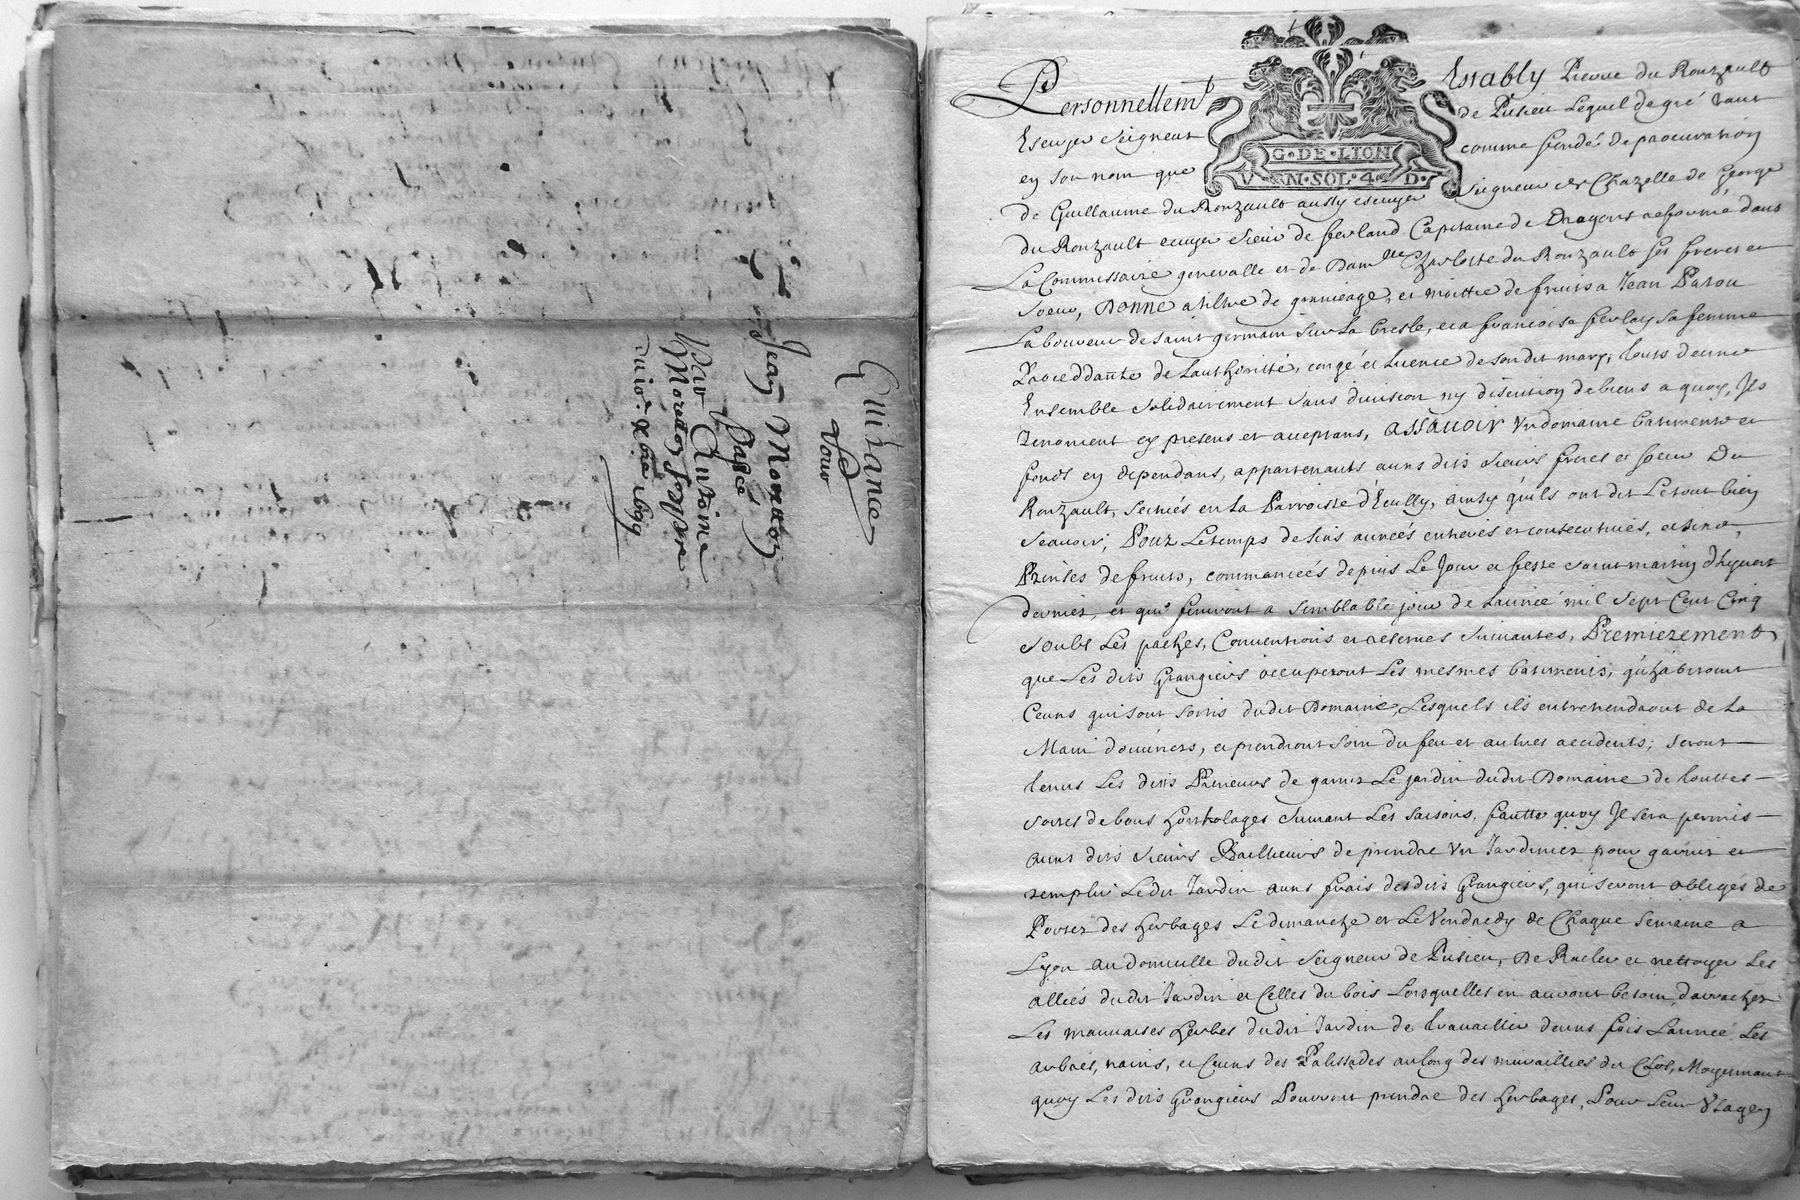 Quittance
Pour
Jean Morettoz
Passé
Par Antoine
Morettoz son pere
Du 10e xbre 1699
G·DE·LION
VN·SOL·4·D·
Personnellemt Estably Pierre du Ronzault
Escuyer Seigneur de Pusieu Lequel de gré tant
en son nom que comme fondé de procuration
de Guillaume du Ronzault aussy escuyer Seigneur de Chazelle de George
du Ronzault ecuyer Sieur de ferland Capitaine de Dragons reformé dans
La Commissaire generalle et de Damlle Charlotte du Ronzault ses freres et
soeur, Donne a tiltre de grangeage, et moittié de fruits a Jean Paron
Laboureur de saint germain sur la bresle, et a francoise ferlay sa femme
Proceddante de Lauthoritté, congé et Licence de son dit mary, touts deux
Ensemble solidairement sans division ny discution de biens a quoy, Ils
renoncent cy presens et acceptans, assavoir Un domaine batiments et
fonds en dependans, appartenants auxs dits sieurs freres et soeur Du
Ronzault, scitués en la Parroisse d'Ecully, ainsy quils ont dit Le tout bien
scavoir, Pour Le temps de six années entieres et consecutives, et six
Prinses de fruits, commancées depuis Le Jour et feste saint martin d'hyvert
dernier, et qui finiront a semblable jour de Lannée mil sept Cent Cinq
soubs Les paches, Conventions et reserves suivantes, Premierement
que Les dits Grangiers occuperont Les mesmes batiments, qu'habitoient
Ceuxs qui sont sortis dudit Domaine, Lesquels ils entretiendront de La
Main d'ouvriers, et prendront soin du feu et autres accidents; seront
tenus Les dits Preneurs de garnir Le jardin dudit Domaine de touttes
sortes de bons hortolages suivant Les saisons, fautte quoy Il sera permis
auxs dits sieurs Bailleurs de prendre Un Jardinier pour garnir et
remplir Ledit Jardin auxs frais desdits Grangiers, qui seront obligés de
Porter des herbages Le dimanche et Le Vendredy de Chaque semaine a
Lyon au domicille dudit Seigneur de Pusieu, De Racler et nettoyer Les
allées dudit Jardin et Celles du bois Lorsquelles en auront besoin, d'arracher
Les mauvaises herbes dudit Jardin de travailler deuxs fois Lannée Les
arbres, nains, et Ceuxs des Palissades au long des murailles du Clos, Moyennant
quoy Les dits Grangiers Pourront prendre des herbages, Pour Leur Usagen